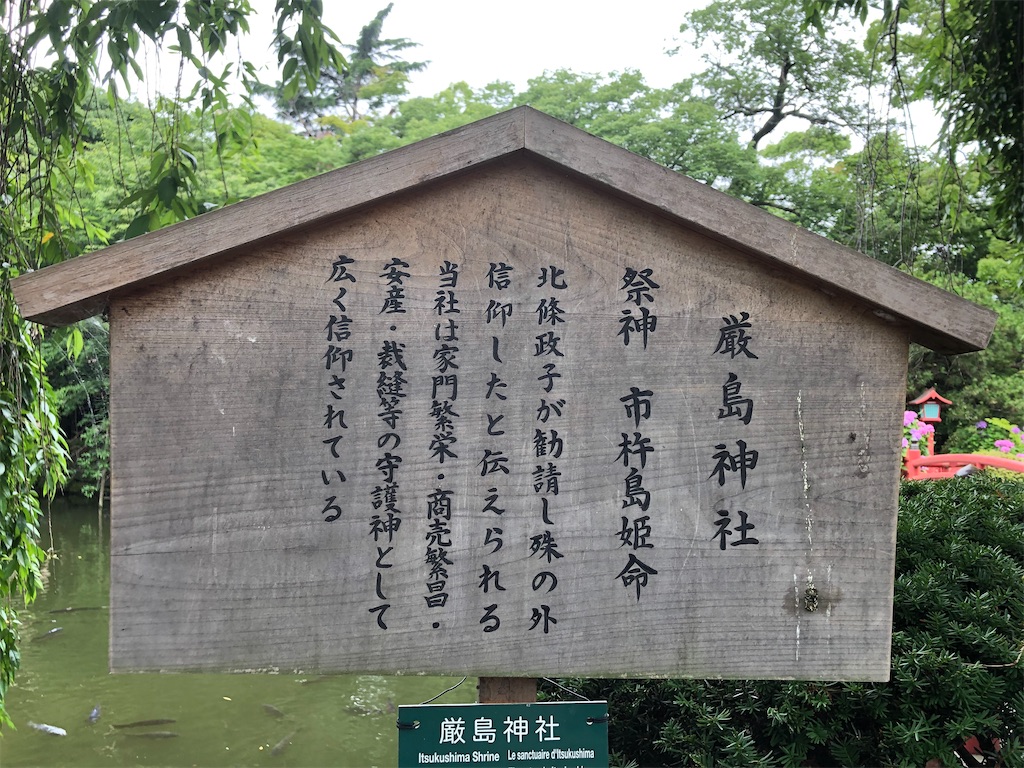 厳島神社
祭神　市杵島姫命
北條政子が勧請し殊の外
信仰したと伝えられる
当社は家門繁栄・商売繁昌・
安産・裁縫等の守護神として
広く信仰されている
厳島神社
Itsukushima Shrine　Le sanctuaire d'Itsukushima